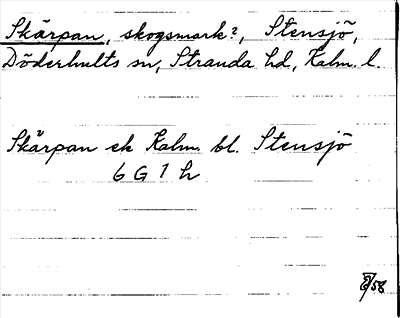 Skärpan, skogsmark?, Stensjö,
Döderhults sn, Stranda hd, Kalm. l.
Skärpan ek Kalm. bl. Stensjö
6 G 1 h
/58